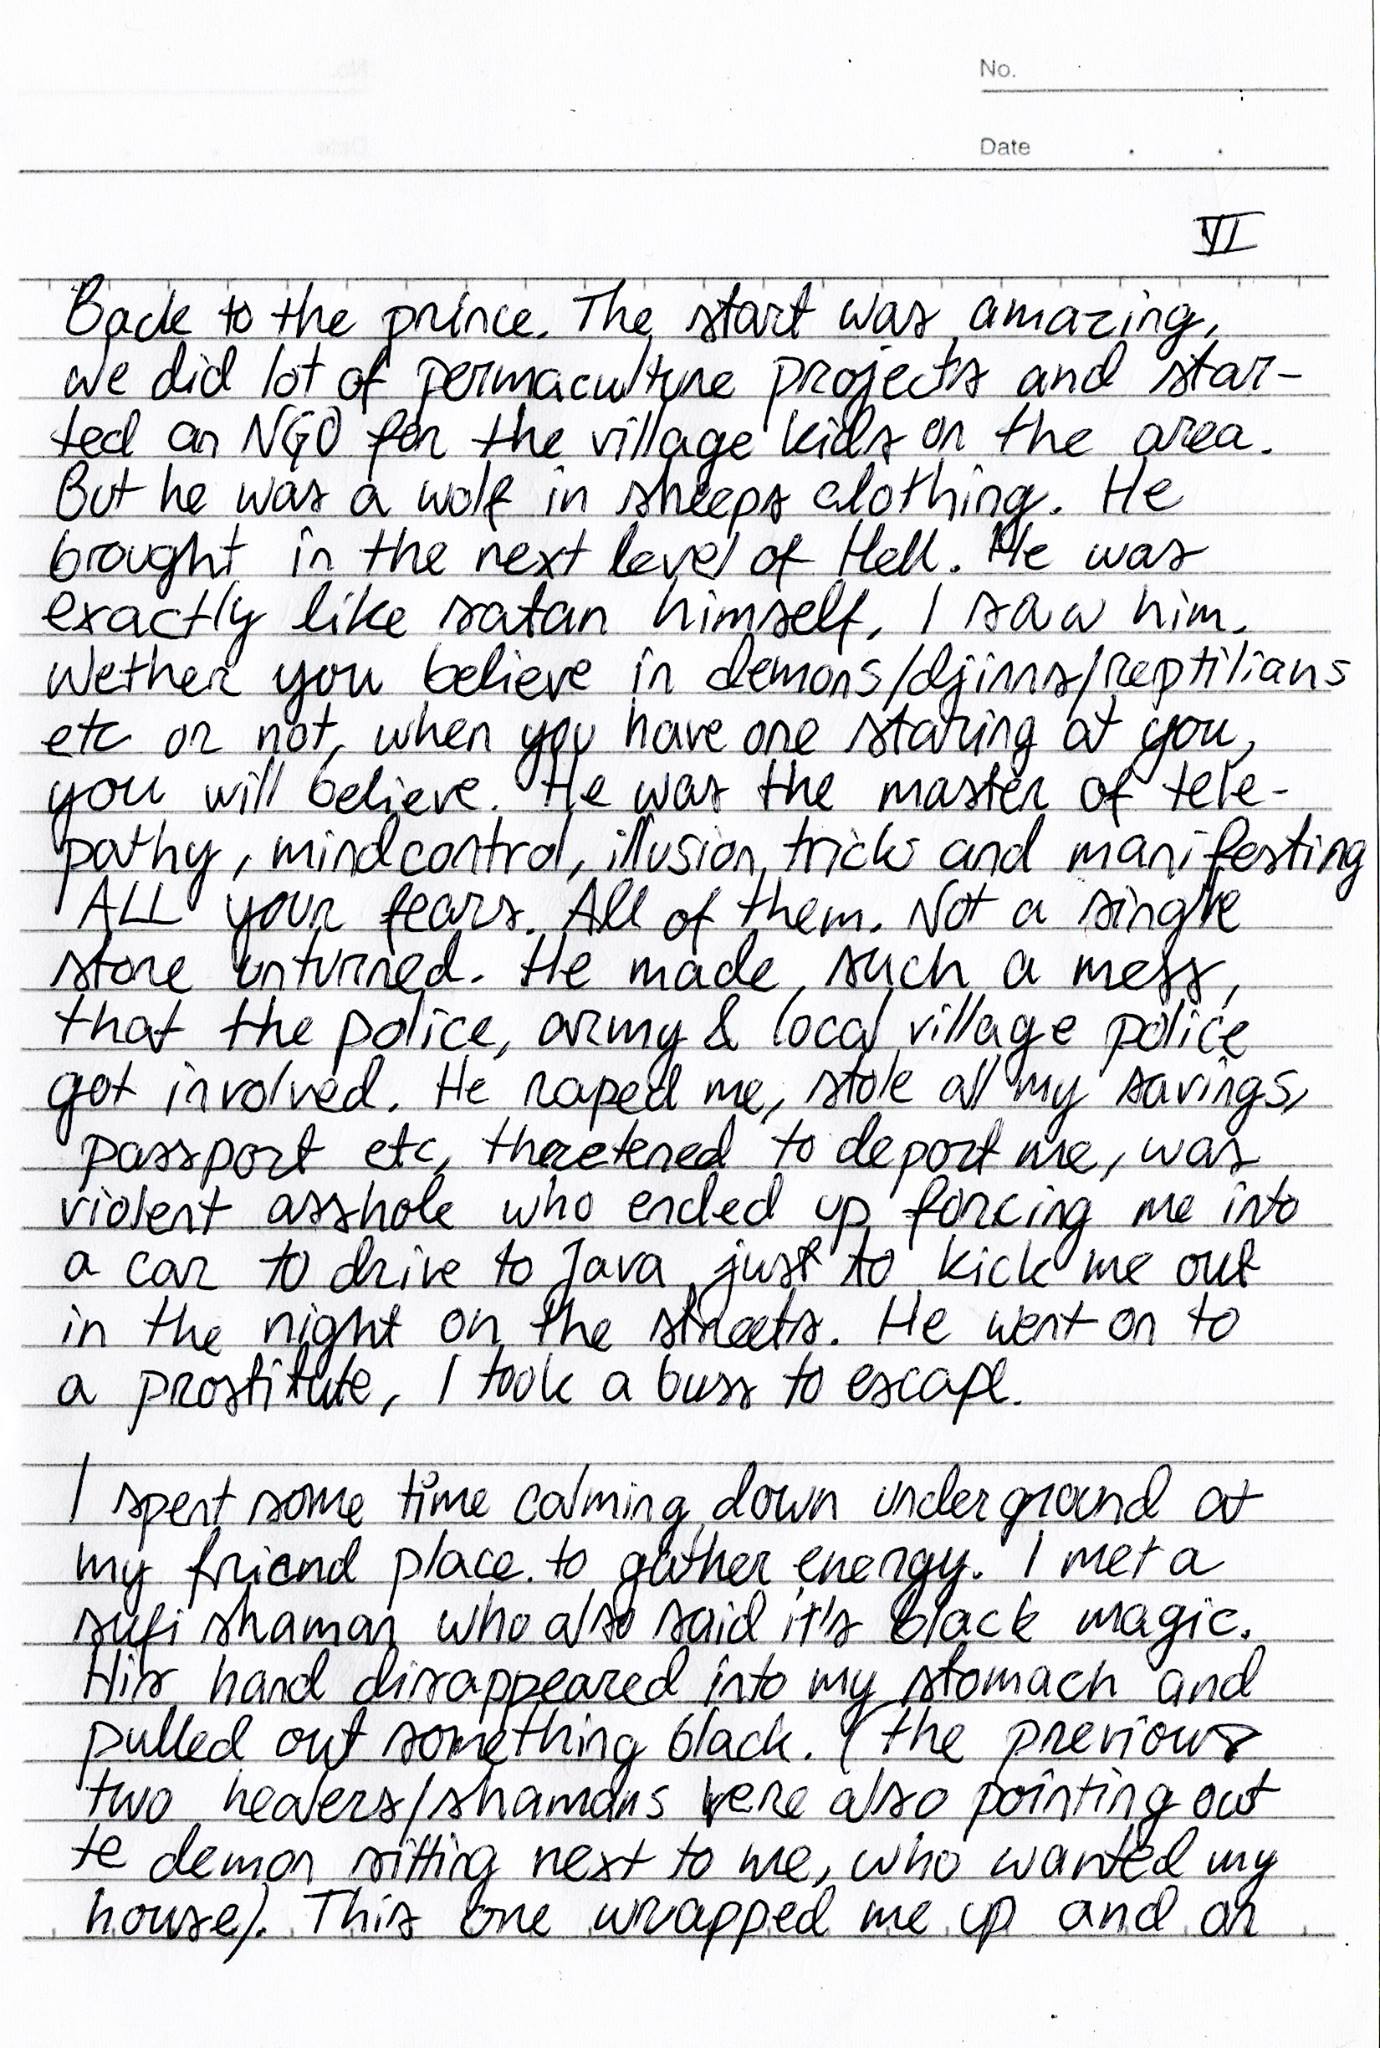 No.
Date . .
VI
Back to the prince. The start was amazing,
we did lot of permaculture projects and star-
ted an NGO for the village kids on the area.
But he was a wolf in sheeps clothing. He
brought in the next level of Hell. He was
exactly like satan himself, I saw him.
Wether you believe in demons/djinns/reptilians
etc or not, when you have one staring at you,
you will believe. He was the master of tele-
pathy, mindcontrol, illusion, tricks and manifesting
ALL your fears. All of them. Not a single
stone unturned. He made such a mess,
that the police, army & local village police
got involved. He raped me, stole all my savings,
passport etc, theretened to deport me, was
violent asshole who ended up forcing me into
a car to drive to Java just to kick me out
in the night on the streets. He went on to
a prostitute, I took a buss to escape.
I spent some time calming down underground at
my friend place. to gather energy. I met a
sufi shaman who also said it's black magic.
His hand disappeared into my stomach and
pulled out something black. (the previous
two healers/shamans were also pointing out
te demon sitting next to me, who wanted my
house). This one wrapped me up and an